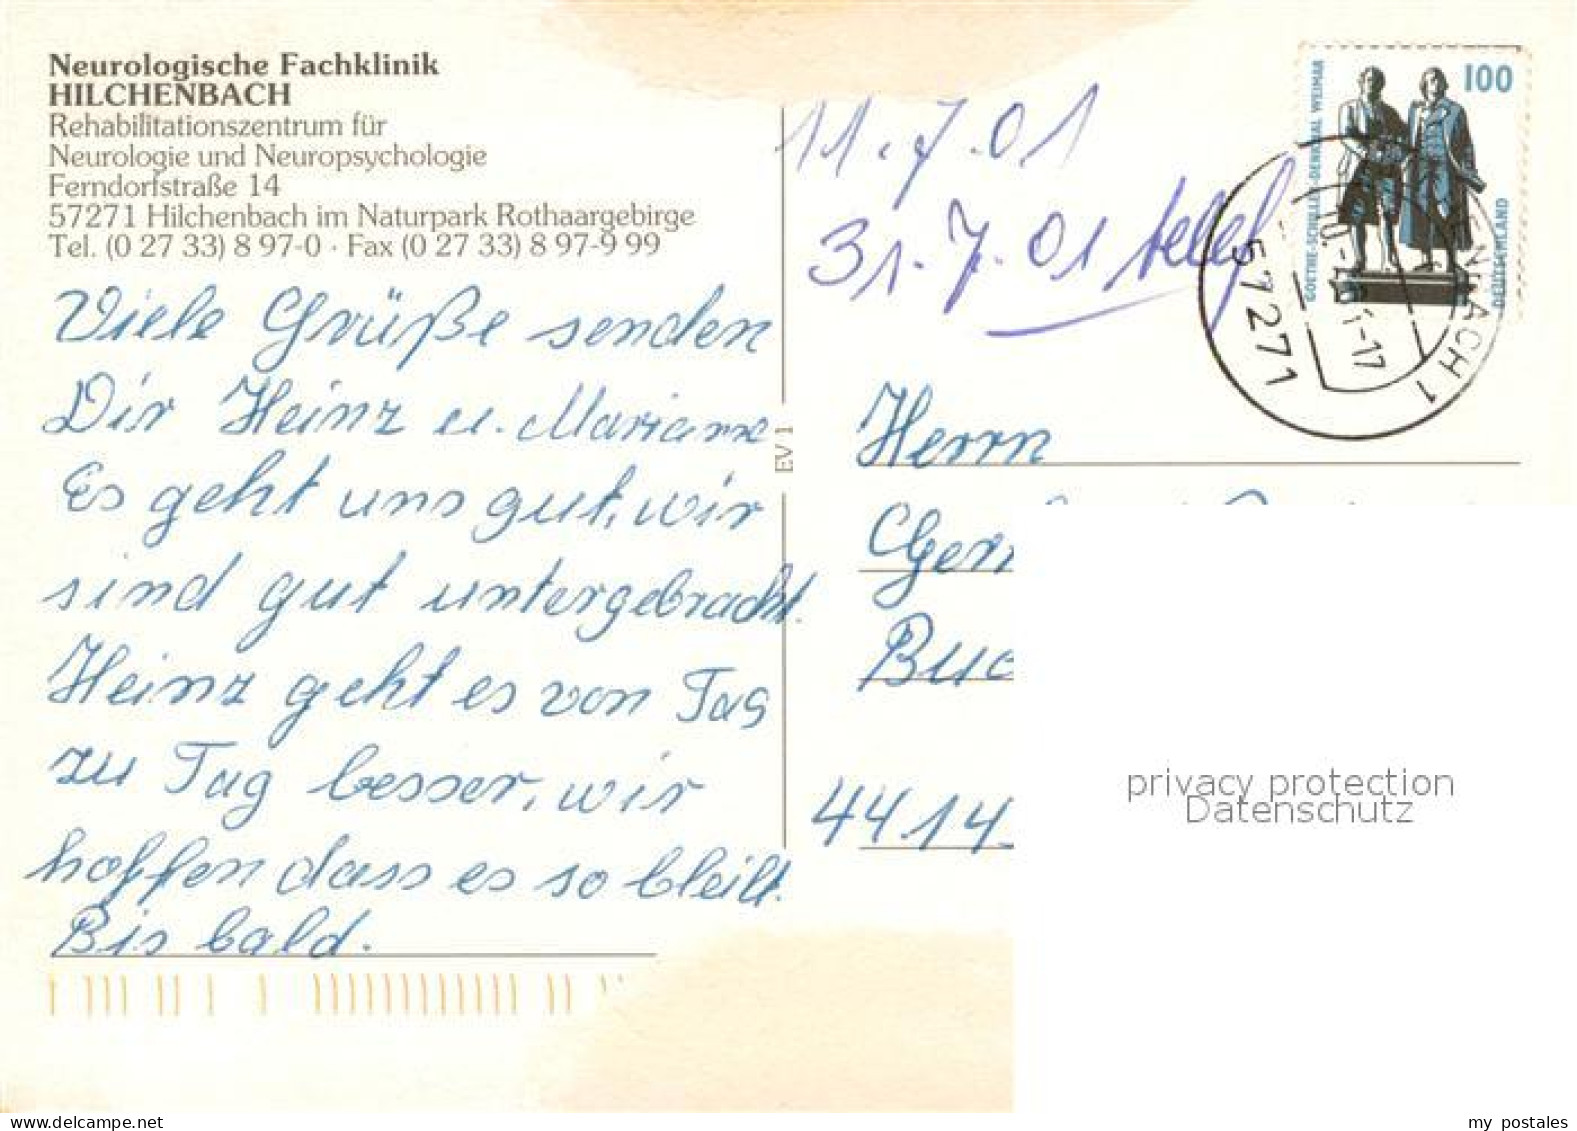 Neurologische Fachklinik
HILCHENBACH
Rehabilitationszentrum für
Neurologie und Neuropsychologie
Ferndorfstraße 14
57271 Hilchenbach im Naturpark Rothaargebirge
Tel. (0 27 33) 8 97-0 · Fax (0 27 33) 8 97-9 99
Viele Grüße senden
Dir Heinz u. Marianne
Es geht uns gut, wir
sind gut untergebracht.
Heinz geht es von Tag
zu Tag besser, wir
hoffen dass es so bleibt.
Bis bald.
EV 1
11.7.01
31.7.01 telef
100
GOETHE-SCHILLER-DENKMAL WEIMAR
DEUTSCHLAND
57271
NBACH 1
Herrn
Buc
4414
privacy protection
Datenschutz
my postales